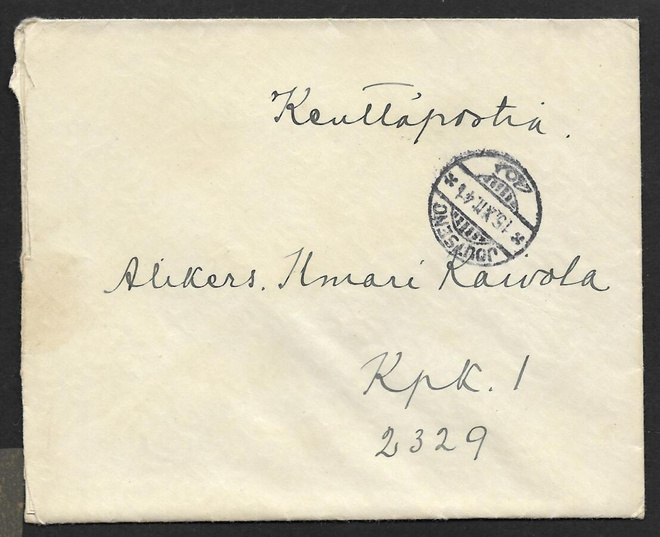 Kenttäpostia.
JOUTSENO
15.XII.41
Alikers. Ilmari Kaivola
Kpk. 1
2329